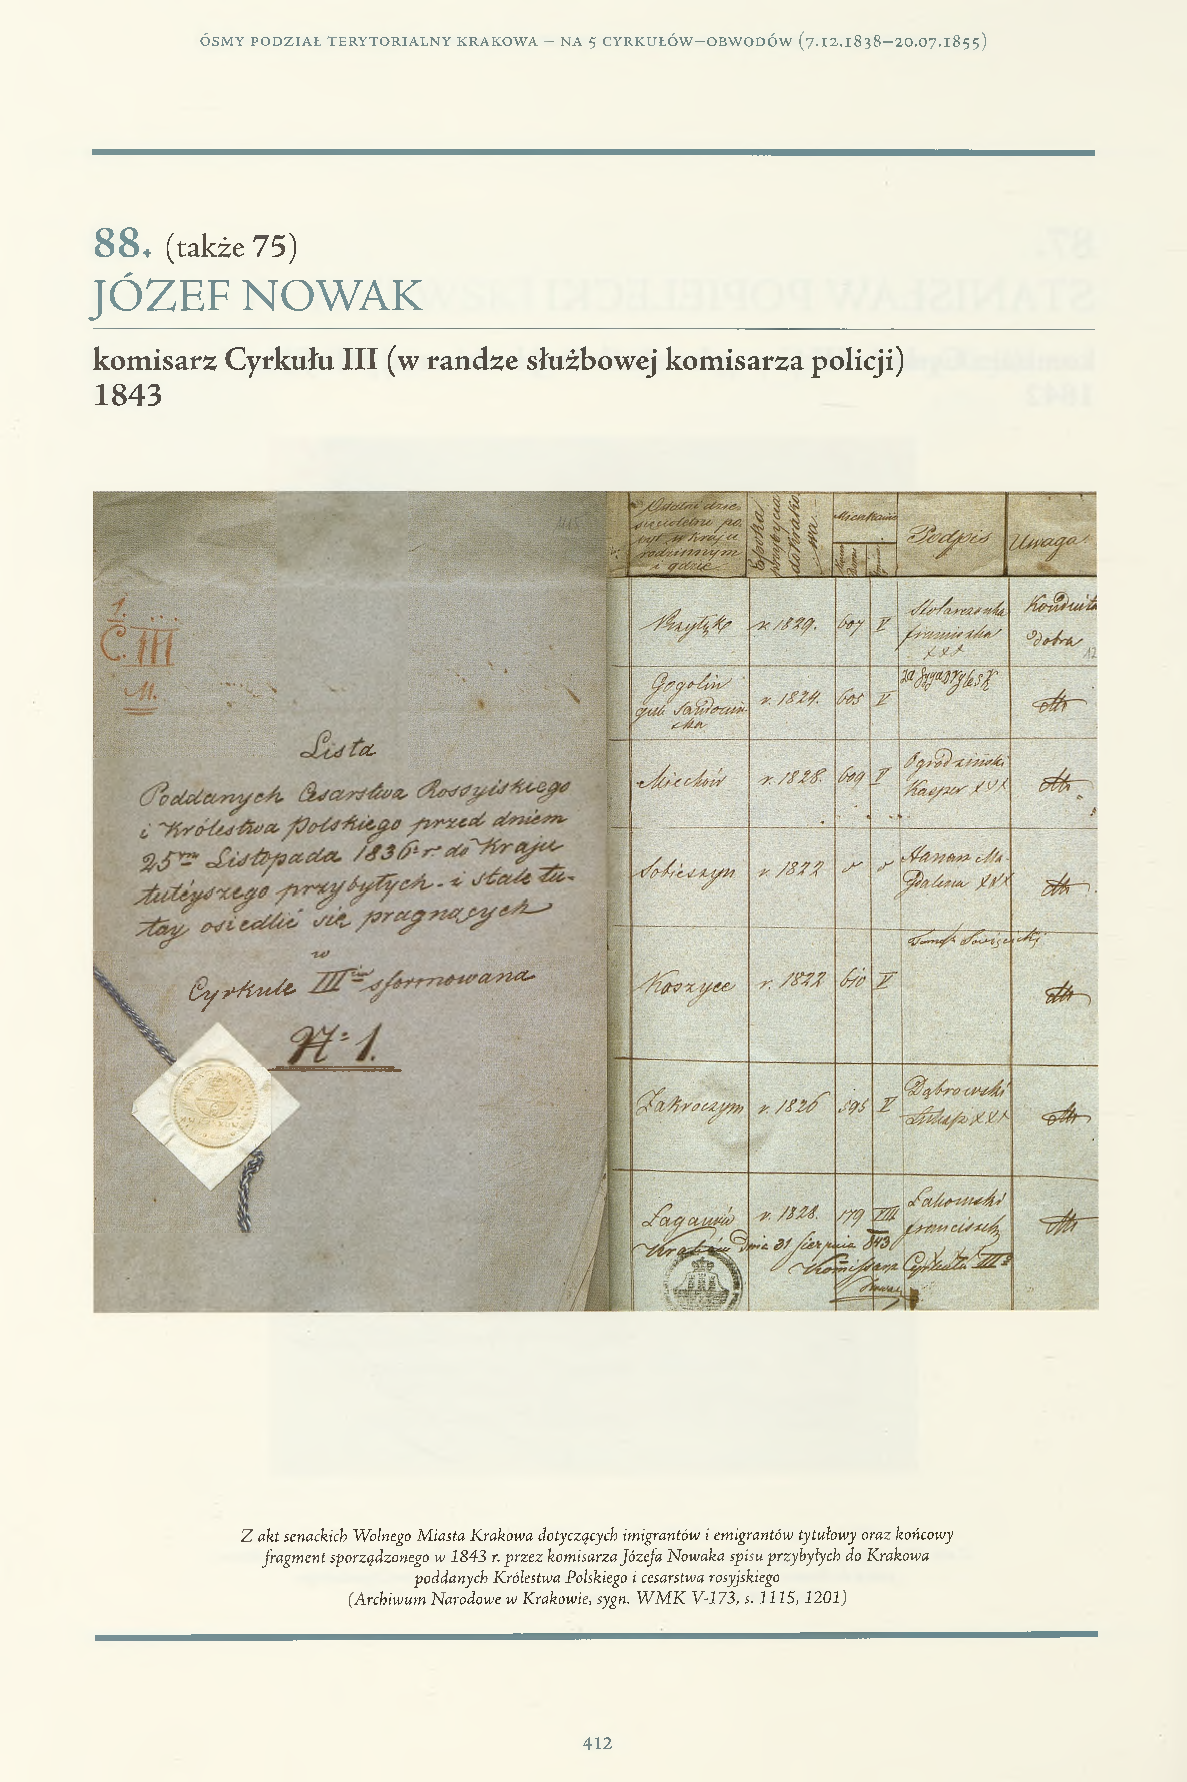 ÓSMY PODZIAŁ TERYTORIALNY KRAKOWA – NA 5 CYRKUŁÓW–OBWODÓW (7.12.1838–20.07.1855)
88. (także 75)
JÓZEF NOWAK
komisarz Cyrkułu III (w randze służbowej komisarza policji)
1843
1.
C. III
M.
Lista
Poddanych Cesarstwa Rossyiskiego
i Królestwa Polskiego przed dniem
25 Listopada 1836 r. do Kraju
tutéyszego przybyłych i stale tu-
tay osiedlić się pragnących
w
Cyrkule III sformowana
N: 1.
Ostatni
pobyt w Kraju
rodzinnym
i gdzie
Epoka
przybycia
do Krako
wa
Mieszkanie
Podpis
Uwaga
r. 1829. 607 V
Konduita
dobra
Gogolin
gub. Sandomir-
ska
r. 1824. 605 V
Miechów r. 1828. 609 V Ogrodziński
Kasper XXX
Sobieszyn r. 1822 Ma-
gdalena XXX
Koszyce r. 1822 610 V
Zakroczym r. 1826 595 V Dąbrowski
XXX
r. 1828. 179 VIII
Franciszek
Kraków dnia 31 Sierpnia 843
Komissarz Cyrkułu III
Nowak
Z akt senackich Wolnego Miasta Krakowa dotyczących imigrantów i emigrantów tytułowy oraz końcowy
fragment sporządzonego w 1843 r. przez komisarza Józefa Nowaka spisu przybyłych do Krakowa
poddanych Królestwa Polskiego i cesarstwa rosyjskiego
(Archiwum Narodowe w Krakowie, sygn. WMK V-173, s. 1115, 1201)
412